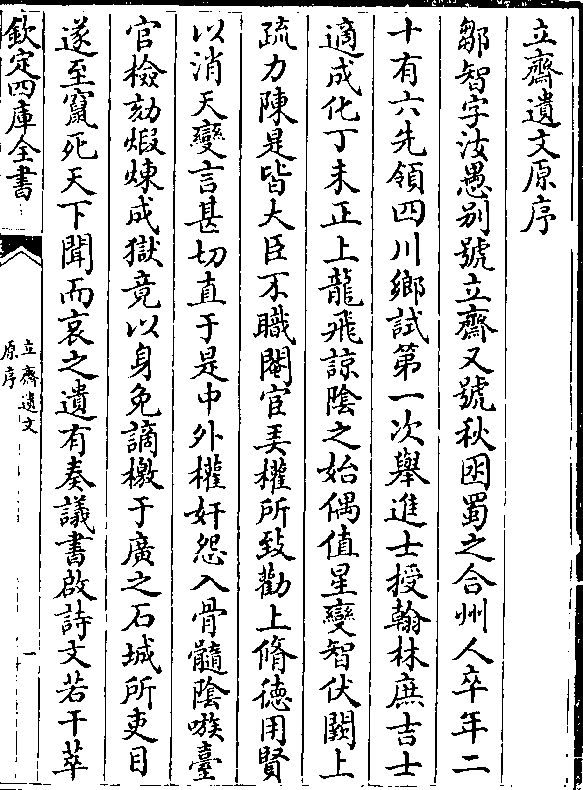 立齋遺文原序
鄒智字汝愚别號立齋又號秋囦蜀之合州人卒年二
十有六先領四川鄉試第一次舉進士授翰林庶吉士
適成化丁未正上龍飛諒陰之始偶值星變智伏闕上
疏力陳是皆大臣不職閹宦弄權所致勸上脩德用賢
以消天變言甚切直于是中外權奸怨入骨髓陰嗾臺
官檢劾煅煉成獄竟以身免謫檄于廣之石城所吏目
遂至竄死天下聞而哀之遺有奏議書啟詩文若干萃
欽定四庫全書
立齋遺文
原序
一